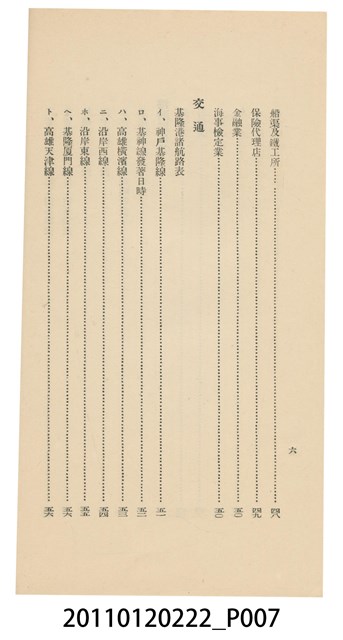 船渠及鐵工所……四八
保險代理店……四九
金融業……五〇
海事檢定業……五〇
交通
基隆港諸航路表
イ、神戶基隆線……五一
ロ、基神線發著日時……五二
ハ、高雄橫濱線……五三
ニ、沿岸西線……五四
ホ、沿岸東線……五五
ヘ、基隆厦門線……五六
ト、高雄天津線……五六
六
20110120222_P007